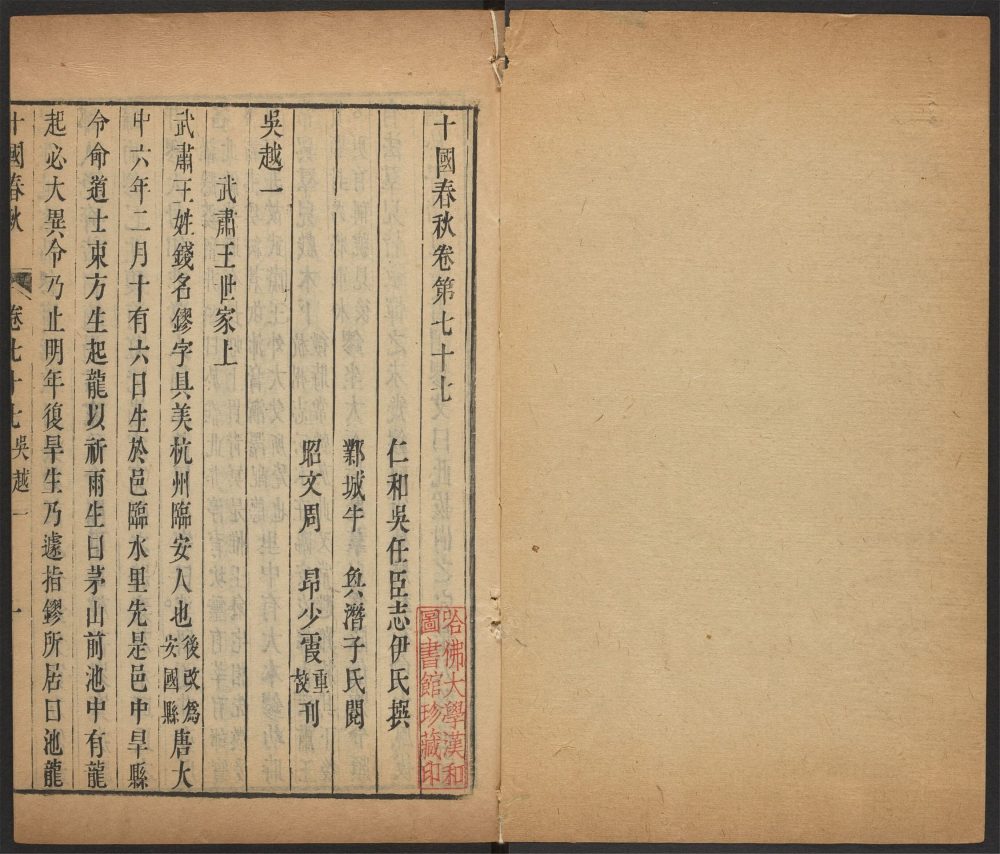 十國春秋卷第七十七
仁和吳任臣志伊氏撰
鄴城牛 奐潛子氏閱
昭文周 昂少霞重校刊
吳越一
武肅王世家上
武肅王姓錢名鏐字具美杭州臨安人也後改爲安國縣唐大
中六年二月十有六日生於邑臨水里先是邑中旱縣
令命道士東方生起龍以祈雨生曰茅山前池中有龍
起必大異令乃止明年復旱生乃遽指鏐所居曰池龍
十國春秋 卷七十七吳越一 一
哈佛大學漢和
圖書館珍藏印